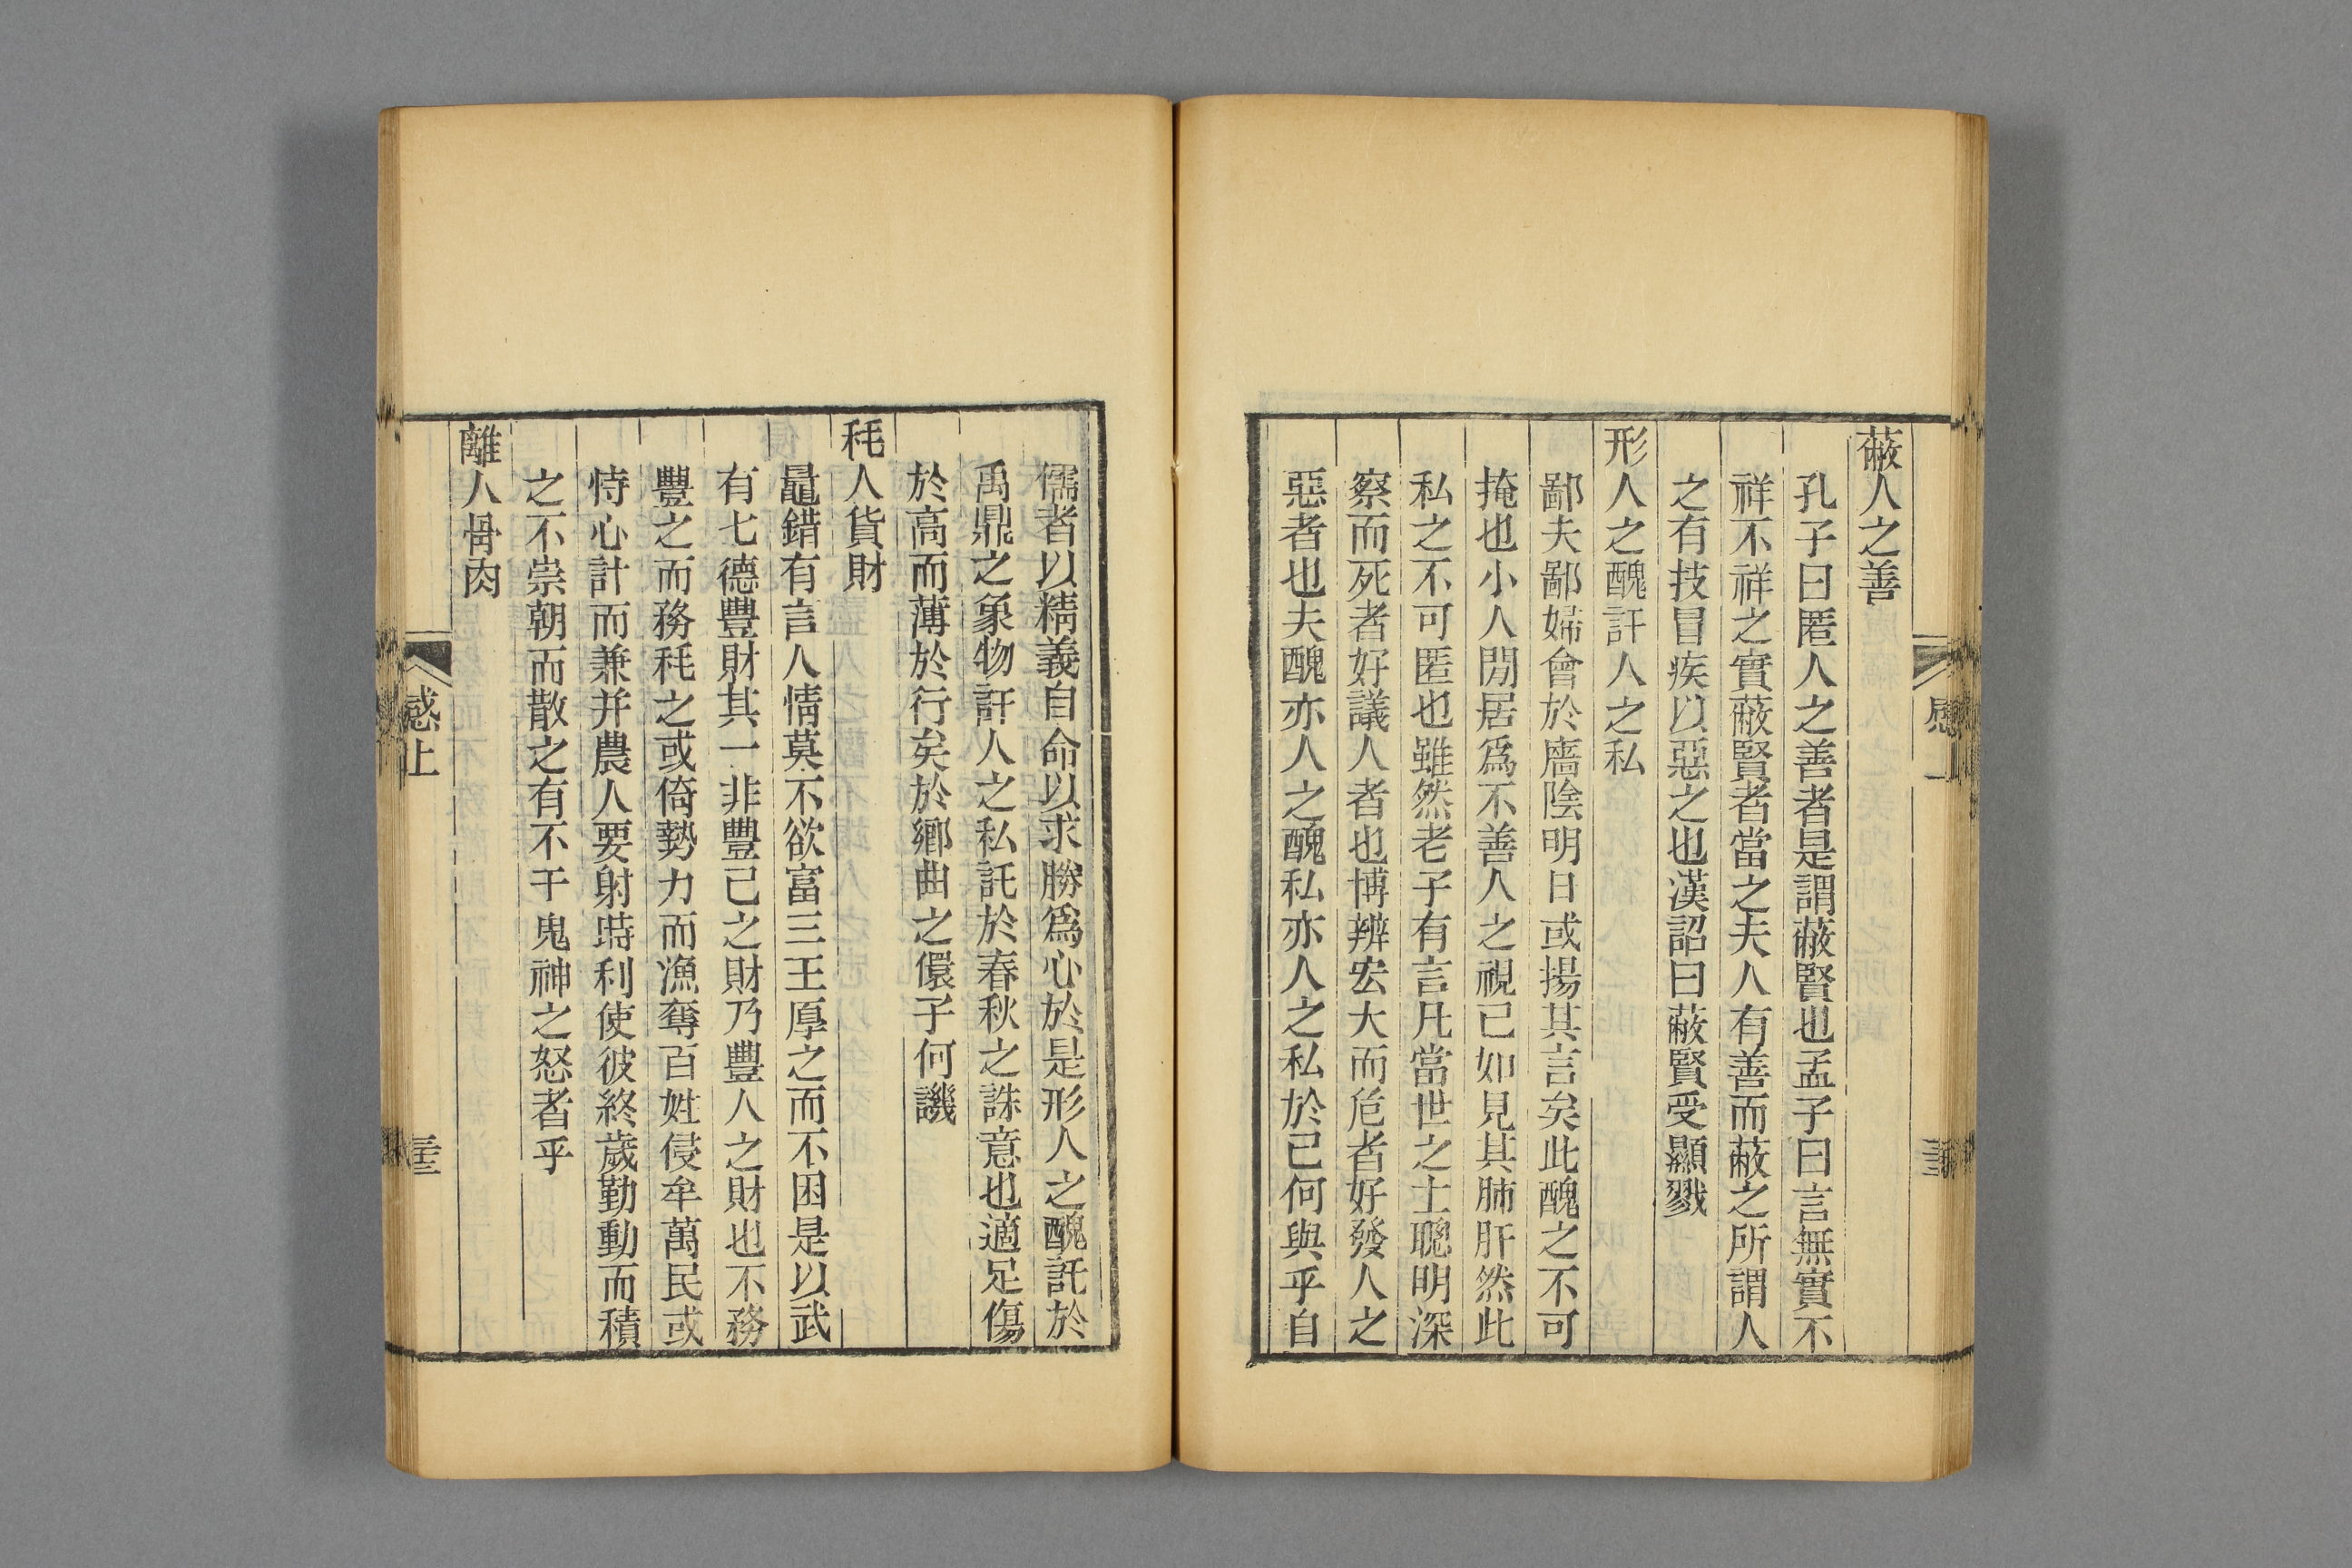 蔽人之善
孔子曰匿人之善者是謂蔽賢也孟子曰言無實不
祥不祥之實蔽賢者當之夫人有善而蔽之所謂人
之有技冒疾以惡之也漢詔曰蔽賢受顯戮
形人之醜訐人之私
鄙夫鄙婦會於廧陰明日或揚其言矣此醜之不可
掩也小人閒居爲不善人之視己如見其肺肝然此
私之不可匿也雖然老子有言凡當世之士聰明深
察而死者好議人者也博辨宏大而危者好發人之
惡者也夫醜亦人之醜私亦人之私於己何與乎自
儒者以精義自命以求勝爲心於是形人之醜託於
禹鼎之象物訐人之私託於春秋之誅意也適足傷
於高而薄於行矣於鄉曲之儇子何譏
秏人貨財
鼂錯有言人情莫不欲富三王厚之而不困是以武
有七德豐財其一非豐己之財乃豐人之財也不務
豐之而務秏之或倚勢力而漁奪百姓侵牟萬民或
恃心計而兼并農人要射時利使彼終歲勤動而積
之不崇朝而散之有不干鬼神之怒者乎
離人骨肉
感上